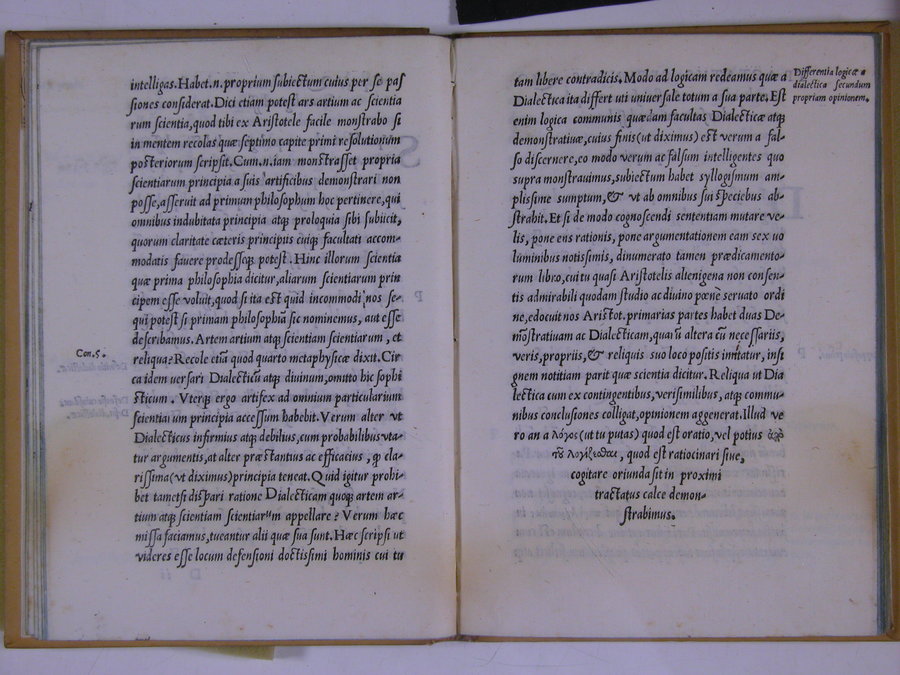 intelligas. Habet .n. proprium subiectum cuius per se pas
siones considerat. Dici etiam potest ars artium ac scientia
rum scientia, quod tibi ex Aristotele facile monstrabo si
in mentem recolas quæ septimo capite primi resolutionum
posteriorum scripsit. Cum .n. iam monstrasset propria
scientiarum principia a suis artificibus demonstrari non
posse, asseruit ad primam philosophum hoc pertinere, qui
omnibus indubitata principia atq; proloquia sibi subiicit,
quorum claritate cæteris principiis cuiq; facultati accom-
modatis fauere prodesseq; potest. Hinc illorum scientia
quæ prima philosophia dicitur, aliarum scientiarum prin
cipem esse voluit, quod si ita est quid incommodi nos se-
qui potest si primam philosophiã sic nominemus, aut esse
describamus. Artem artium atq; scientiam scientiarum, et
Con. 5.
reliqua? Recole etiã quod quarto metaphysicæ dixit. Cir
ca idem uersari Dialecticũ atq; diuinum, omitto hic sophi
sticum. Vterq; ergo artifex ad omnium particularium
scientiarum principia accessum habebit. Verum alter vt
Dialecticus infirmius atq; debilius, cum probabilibus vta-
tur argumentis, at alter præstantius ac efficacius, q; cla-
rissima (vt diximus) principia teneat. Quid igitur prohi-
bet tametsi dispari ratione Dialecticam quoq; artem ar-
tium atq; scientiam scientiarum appellare? Verum hæc
missa faciamus, tueantur alii quæ sua sunt. Hæc scripsi ut
videres esse locum defensioni doctissimi hominis cui tu
D ii
tam libere contradicis. Modo ad logicam redeamus quæ a
Dialectica ita differt uti uniuersale totum a sua parte. Est
Differentia logicæ a
dialectica secundum
propriam opinionem.
enim logica communis quædam facultas Dialecticæ atq;
demonstratiuæ, cuius finis (ut diximus) est verum a fal-
so discernere, eo modo verum ac falsum intelligentes quo
supra monstrauimus, subiectum habet syllogismum am-
plissime sumptum, & vt ab omnibus sui speciebus ab-
strahit. Et si de modo cognoscendi sententiam mutare ve-
lis, pone ens rationis, pone argumentationem eam sex uo
luminibus notissimis, dinumerato tamen prædicamento-
rum libro, cui tu quasi Aristotelis alienigena non consen-
tis admirabili quodam studio ac diuino pœnè seruato ordi
ne, edocuit nos Aristot. primarias partes habet duas De-
mõstratiuam ac Dialecticam, quarũ altera cũ necessariis,
veris, propriis, & reliquis suo loco positis innitatur, insi
gnem notitiam parit quæ scientia dicitur. Reliqua ut Dia
lectica cum ex contingentibus, verisimilibus, atq; commu-
nibus conclusiones colligat, opinionem aggenerat. Illud ve
ro an a λόγος (ut tu putas) quod est oratio, vel potius ἀπὸ
τοῦ λογίζεσθαι, quod est ratiocinari siue,
cogitare oriunda sit in proximi
tractatus calce demon-
strabimus.